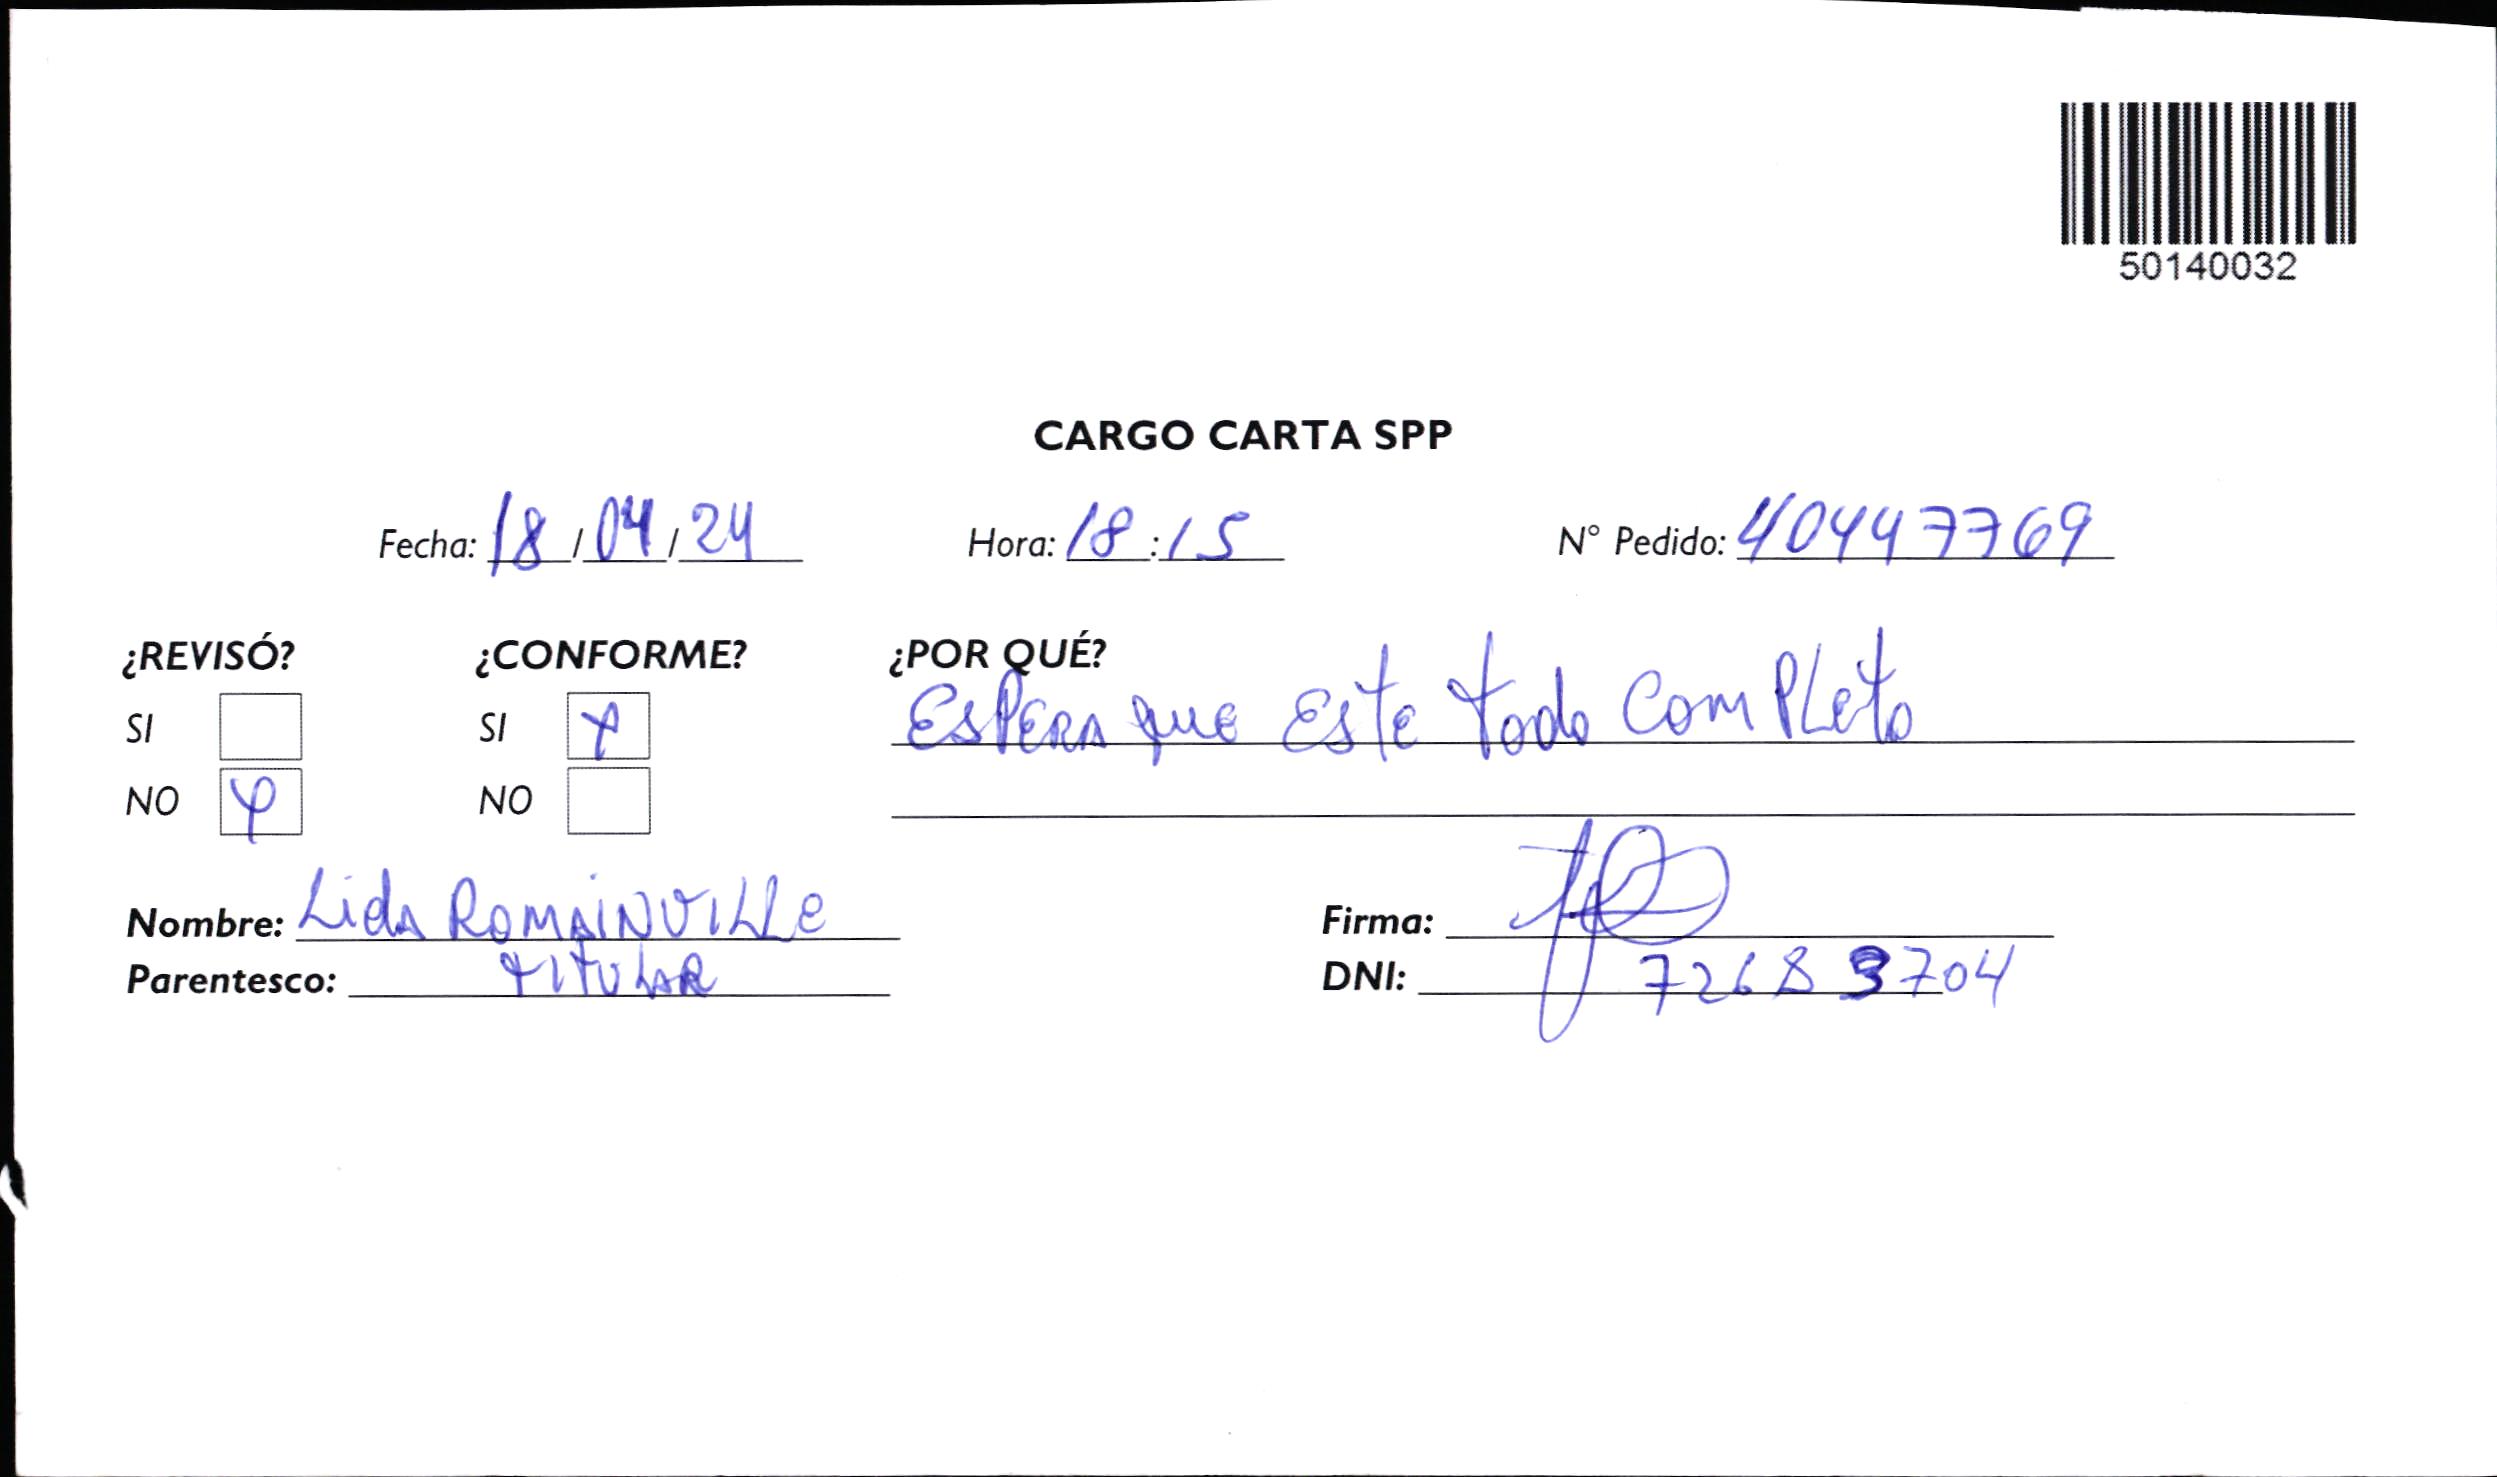 50140032
CARGO CARTA SPP
Fecha: 18/04/24 Hora: 18:15 N° Pedido: 40447769
¿REVISÓ? ¿CONFORME? ¿POR QUÉ?
SI SI X Espera que Este todo completo
NO X NO
Nombre: Lida ROMAINVILLe Firma:
Parentesco: TITULAR DNI: 72683704